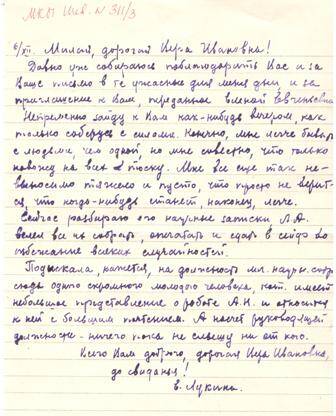 МКП Инв. N 311/3
6/XII. Милая, дорогая Вера Ивановна!
Давно уже собираюсь поблагодарить Вас и за
Ваше письмо в те ужасные для меня дни и за
приглашение к Вам, переданное Еленой Евгеньевной
Непременно зайду к Вам как-нибудь вечером, как
только соберусь с силами. Конечно, мне легче бывать
с людьми, чем одной, но мне совестно, что только
навожу на всех тоску. Мне все еще так не-
выносимо тяжело и пусто, что просто не верит-
ся, что когда-нибудь станет, наконец, легче.
Сейчас разбираю его научные записки Л.А.
велел все их собрать, опечатать и сдать в сейф во
избежание всяких случайностей.
Подыскала, кажется, на должность мл. научн. сотр.
сюда одного скромного молодого человека, кот. имеет
небольшое представление о работе А.Н. и относится
к ней с большим почтением. А насчет руководящей
должности - ничего пока не слышу ни от кого.
Всего Вам доброго, дорогая Вера Ивановна,
до свиданья!
Е. Лукина.